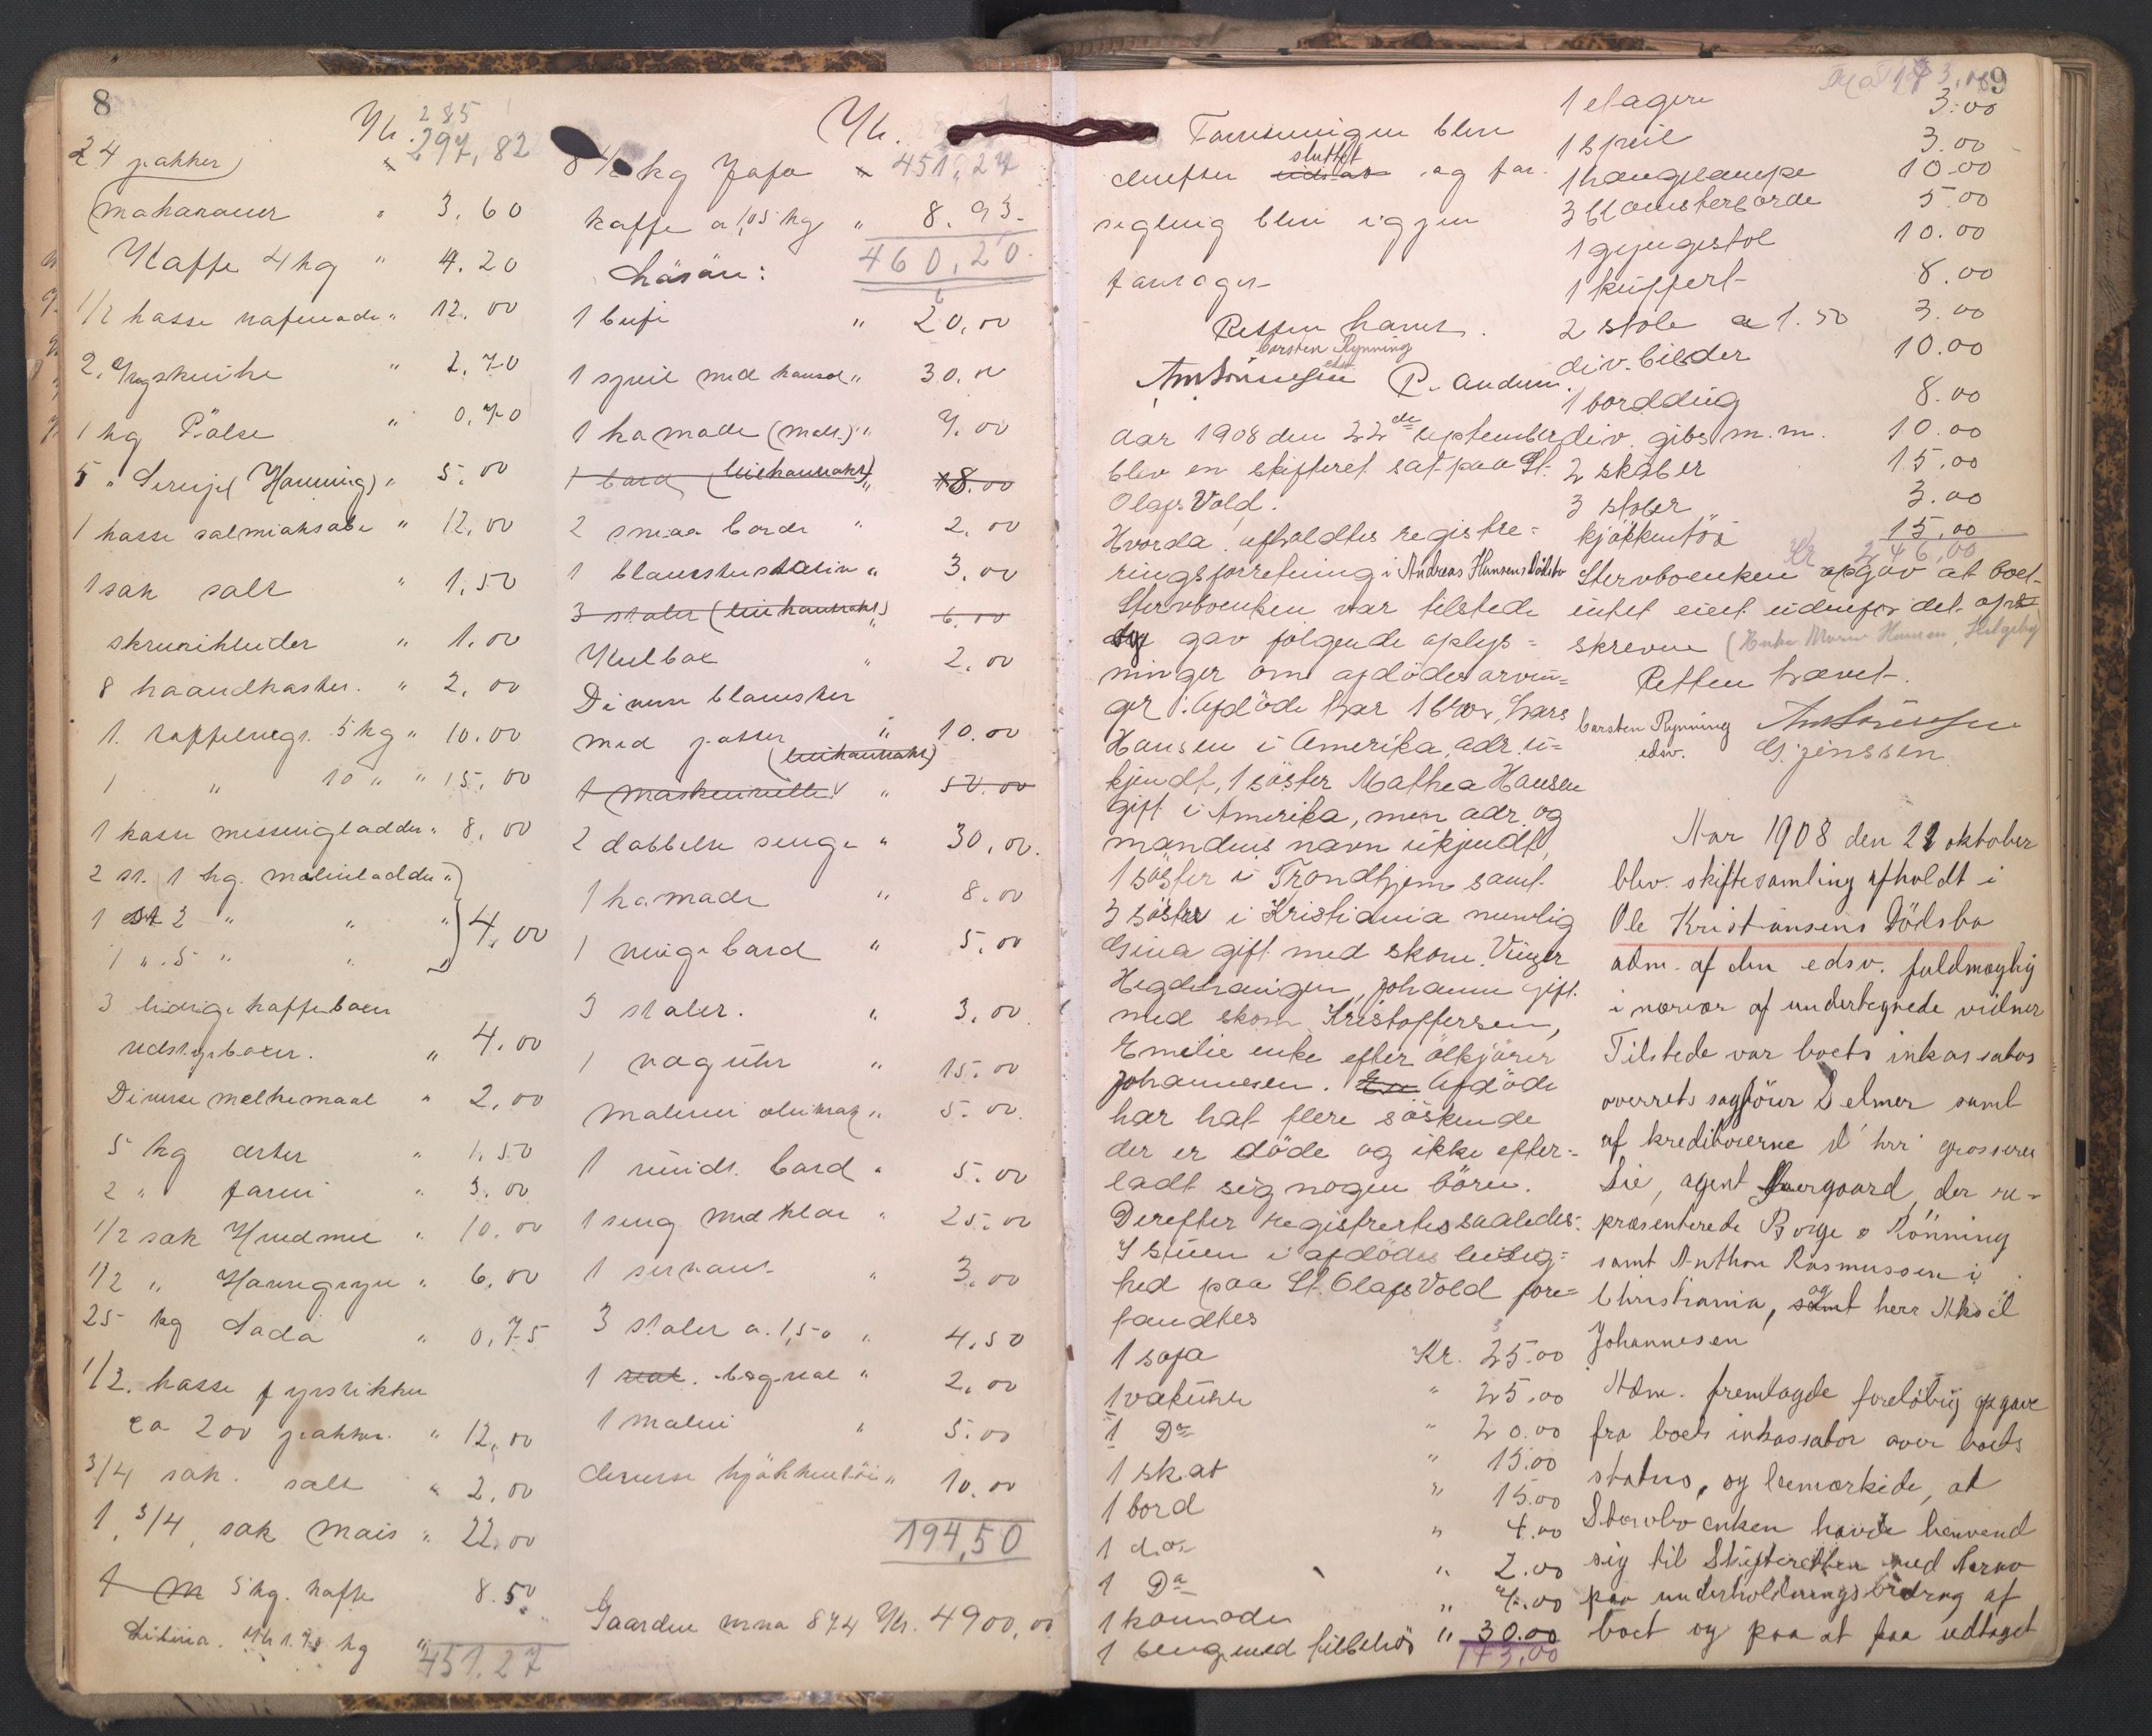 8
Kr. 285
24 pakker " 297,82
makaroner " 3,60
Kaffe 4 kg " 4.20
1/2 kasse rafinade " 12,00
2, " 2,70
1 kg Pölse " 0,70
5 " Sirup (Honning) " 5,00
1 kasse salmiaksæbe " 12,00
1 sæk salt " 1,50
skurekluder " 1,00
8 haandkoster. " 2,00
1. kaffelvegt. 5 kg " 10.00
1 " 10 " " 15,00
1 kasse messinglodder " 8,00
2 st. 1 kg. " 
1 st 2 " " "
1 ". 5 " " " 4,00
3 ledige kaffeboxer
" 4,00
Diverse melkemaal " 2,00
5 kg erter " 1,50
2 " farin " 3,00
1/2 sæk Hvedmel " 10,00
1/2 " Havregryn " 6,00
25 kg Soda " 0,75
1/2. kasse fyrstikker
ca 200 pakker. " 12,00
3/4 sæk. salt " 2,00
1, 3/4, sæk mais " 22,00
5 kg. kaffe 8.50
kg "
451,27
Kr.
8 1/2 kg Java " 451,27
kaffe a 1,05 kg " 8.93.
460,20.
Lösöre:
1 bufe " 20,00
1 speil med konsol " 30,00
1 komode (malt.) " 7.00
1 bord " 18.00
2 smaa borde " 2.00
1 blomsterstativ " 3,00
3 stoler " 6,00
Kulbox " 2,00
Diverse blomster
med potter " 10.00
1 maskinrulle " 50.00
2 dobbelte senge " 30,00.
1 komode " 8.00
1 bord " 5.00
3 stoler. " 3,00
1 væguhr " 15.00
Maleri " 5.00.
1 rundt bord " 5.00
1 seng med klær " 25.00
1 servant " 3,00
3 stoler a. 1,50 " 4,50
1 " 2,00
1 maleri " 5.00
diverse kjökkentöi " 10,00
194,50
Gaarden mno 874 Kr. 4900,00
9
Forretningen blev
derefter sluttet og for-
segling blev igjen
foretaget
Retten hævet.
Carsten Rynning
edsv.
P. Andersen.
Aar 1908 den 22de september
blev en skifteret sat paa St.
Olafs Vold.
Hvorda afholdtes registre=
ringsforretning i Andreas Hansens Dödsbo
Stervboenken var tilstede
og gav fölgende oplys=
ninger om afdödes arvin=
ger: Afdöde har 1 bror, Lars
Hansen i Amerika, adr. u=
kjendt, 1 söster Mathea Hansen
gift i Amerika, men adr. og
mandens navn ukjendt,
1 söster i Trondhjem samt
3 söstre i Kristiania nemlig
Gina gift med skom. Vinger
Hegdehaugen, Johanne gift
med skom. Kristoffersen,
Emilie enke efter ölkjörer
Johannesen. En Afdöde
har hat flere söskende
der er döde og ikke efter=
ladt sig nogen börn.
Derefter registrertes saaledes:
I stuen i afdödes leilig=
hed paa St. Olafs Vold fore=
fandtes
1 sofa Kr. 25.00
1 vækuhr " 25.00
1 Do " 20.00
1 skat " 15.00
1 bord " 15.00
1 do. " 4.00
1 Do " 2.00
1 komode " 7.00
1 seng med tilbehör " 30.00
173,00
173,00
1 etagere 3.00
1 speil 3.00
1 hængelampe 10.00
3 blomsterborde 5.00
1 gyngestol 10.00
1 kuffert 8.00
2 stole a 1.50 3.00
div. bilder 10.00
1 borddug 8.00
div. gibs m.m. 10.00
2 skaber 15.00
3 stoler 3.00
kjökkentöi 15.00
Kr 246,00
Stervboenken opgav at boet
intet eiet udenfor det op=
skrevne
Retten hævet.
Carsten Rynning
edsv. G. Jenssen.
Aar 1908 den 22 oktober
blev skiftesamling afholdt i
Ole Kristiansens Dödsbo
adm. af den edsv. fuldmægtig
i nærvær af undertegnede vidner
Tilstede var boets inkassator
overretssagförer Selmer samt
af kreditorerne d'hrr grosserer
Lie, agent der re=
præsenterede Borge & Rönning
samt Anthon Rasmussen i
Christiania, og samt herr Aksel
Johannesen
Adm. fremlagde forelöbig opgave
fra boets inkassator over boets
status, og bemærkede, at
Stervboenken havde henvend
sig til Skifteretten med krav
paa underholdningsbidrag af
boet og paa at faa udtaget